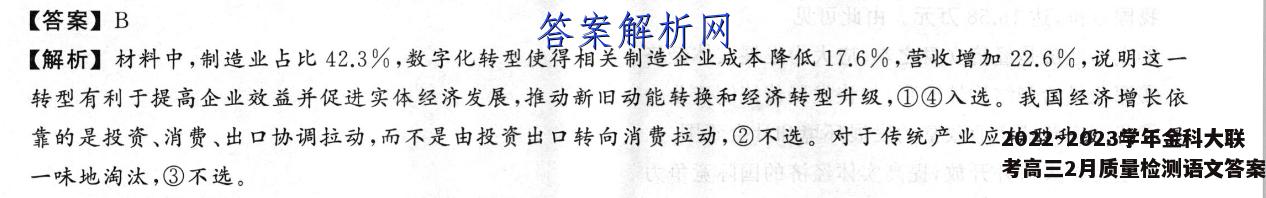 【答案】B
答案解析网
【解析】材料中,制造业占比 42.3%,数字化转型使得相关制造企业成本降低 17.6%,营收增加 22.6%,说明这一
转型有利于提高企业效益并促进实体经济发展,推动新旧动能转换和经济转型升级,①④入选。我国经济增长依
靠的是投资、消费、出口协调拉动,而不是由投资出口转向消费拉动,②不选。对于传统产业应
2022~2023学年金科大联
考高三2月质量检测语文答案
一味地淘汰,③不选。